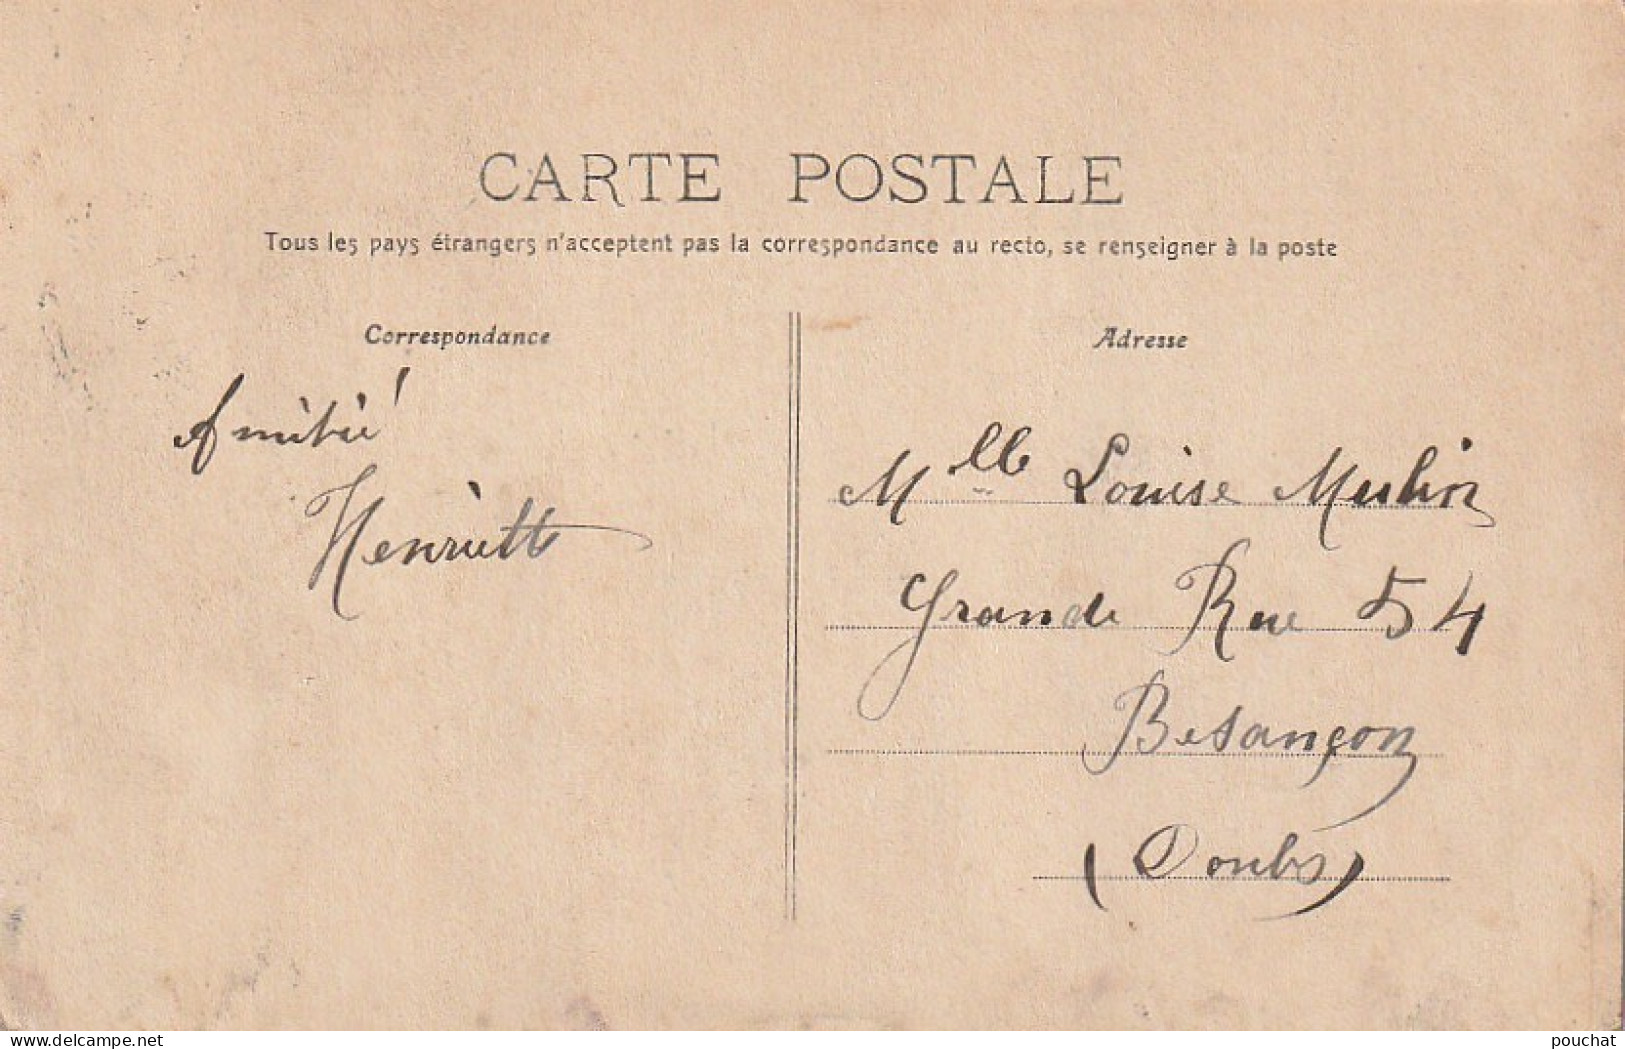 CARTE POSTALE
Tous les pays étrangers n'acceptent pas la correspondance au recto, se renseigner à la poste
Correspondance
Amitié
Henriette
Adresse
Mlle Louise
Grande Rue 54
Besançon
(Doubs)
www.delcampe.net
pouchat